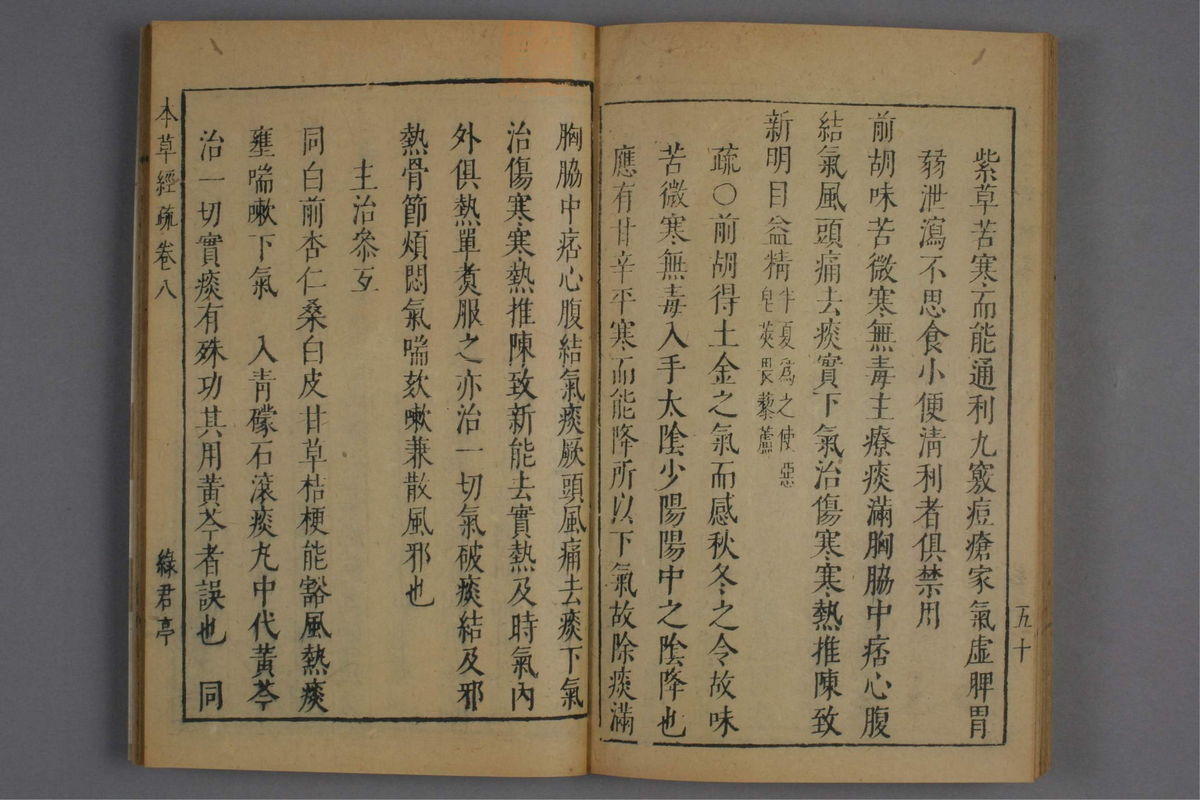 紫草苦寒而能通利九竅痘瘡家氣虛脾胃
弱泄瀉不思食小便清利者俱禁用
前胡味苦微寒無毒主療痰滿胸脇中痞心腹
結氣風頭痛去痰實下氣治傷寒寒熱推陳致
新明目益精半夏爲之使惡
皂莢畏藜蘆
疏○前胡得土金之氣而感秋冬之令故味
苦微寒無毒入手太陰少陽陽中之陰降也
應有甘辛平寒而能降所以下氣故除痰滿
五十
胸脇中痞心腹結氣痰厥頭風痛去痰下氣
治傷寒寒熱推陳致新能去實熱及時氣內
外俱熱單煑服之亦治一切氣破痰結及邪
熱骨節煩悶氣喘欬嗽兼散風邪也
主治叅互
同白前杏仁桑白皮甘草桔梗能豁風熱痰
壅喘嗽下氣　入青礞石滾痰丸中代黃芩
治一切實痰有殊功其用黃芩者誤也　同
本草經疏卷八
綠君亭